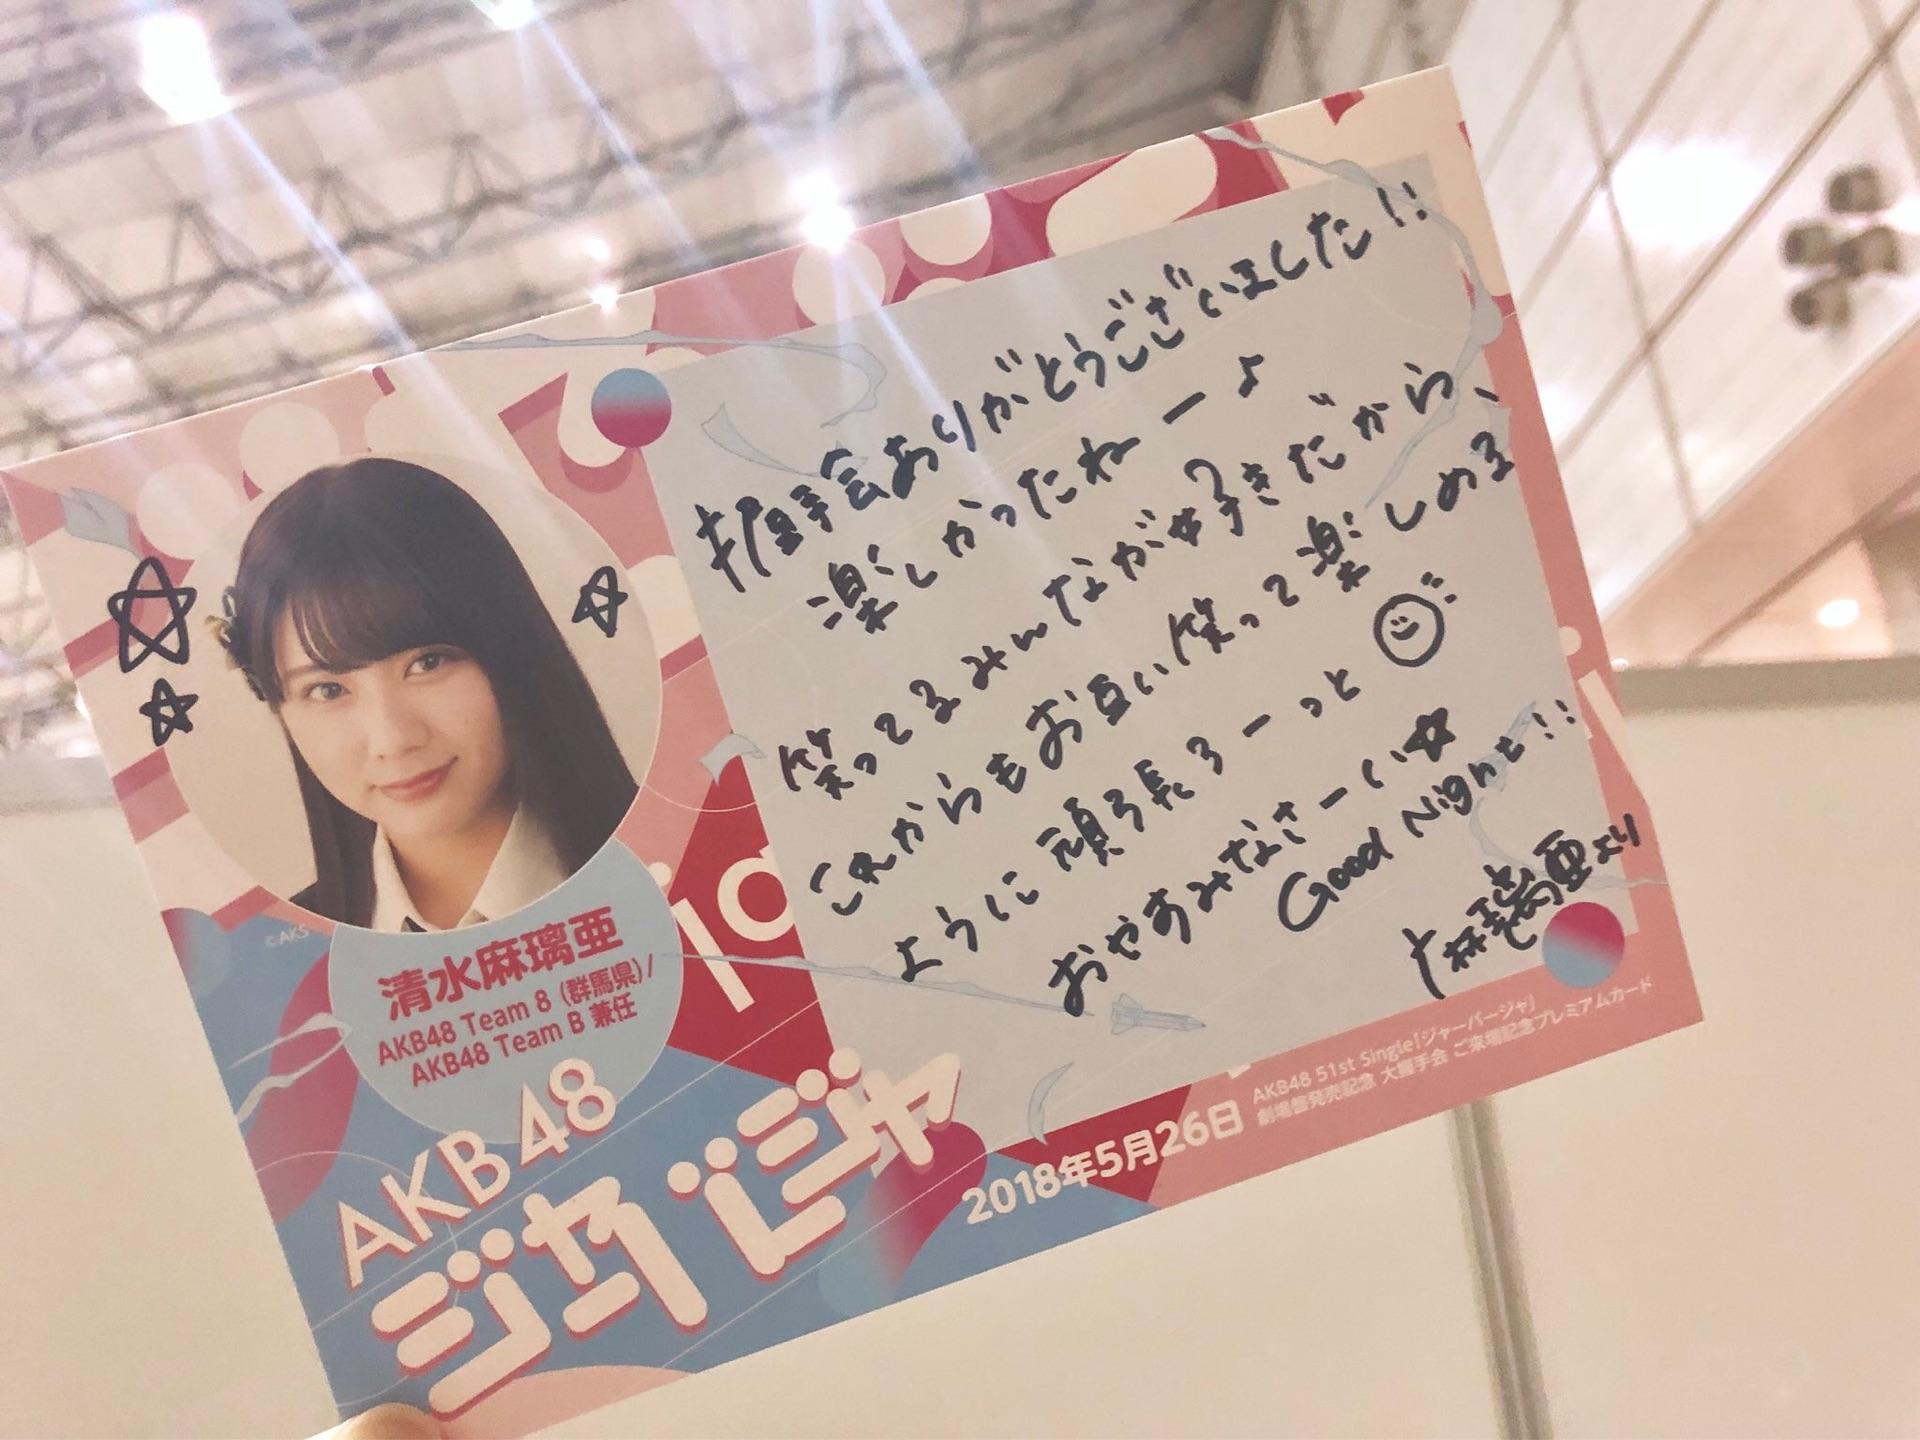 握手会ありがとうございました!!
楽しかったねー♪
笑ってるみんなが好きだから、
これからもお互い笑って楽しめる
ように頑張ろーっと
おやすみなさーい☆
Good Night!!
麻璃亜より
©AKS
清水麻璃亜
AKB48 Team 8 (群馬県)/
AKB48 Team B 兼任
ja
AKB48
ジャーバージャ
2018年5月26日
AKB48 51st Single「ジャーバージャ」
劇場盤発売記念 大握手会 ご来場記念プレミアムカード